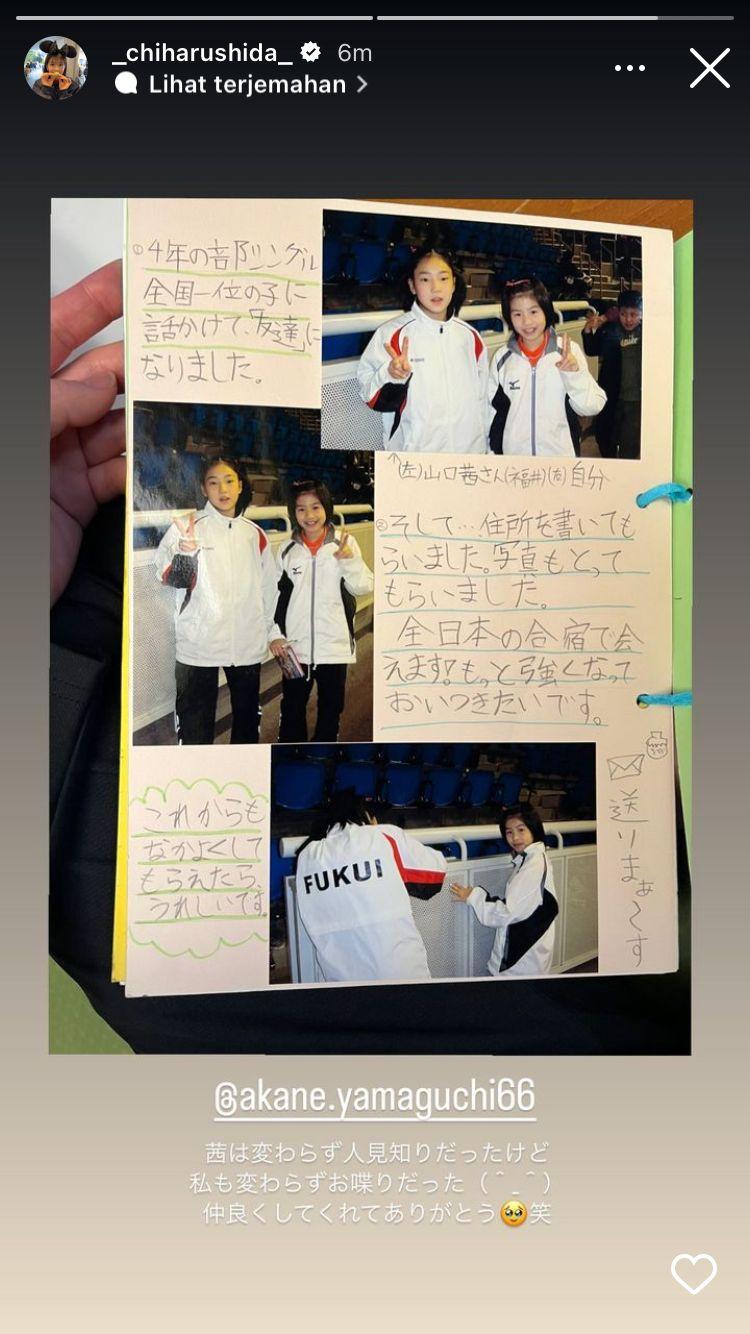 _chiharushida_ 6m
Lihat terjemahan >
①4年の部シングル
全国一位の子に
話かけて、「友達」に
なりました。
↑(左)山口茜さん(福井)(右)自分
②そして…住所を書いても
らいました。写真もとって
もらいました。
全日本の合宿で会
えます!もっと強くなって
おいつきたいです。
これからも
なかよくして
もらえたら、
うれしいです。
FUKUI
送りまぁ〜す
@akane.yamaguchi66
茜は変わらず人見知りだったけど
私も変わらずお喋りだった（＾_＾）
仲良くしてくれてありがとう🥹笑